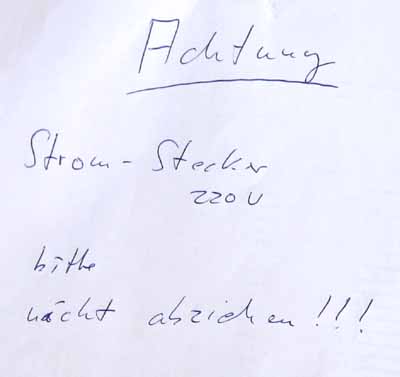 Achtung
Strom-Stecker
220 V
bitte
nicht abziehen!!!